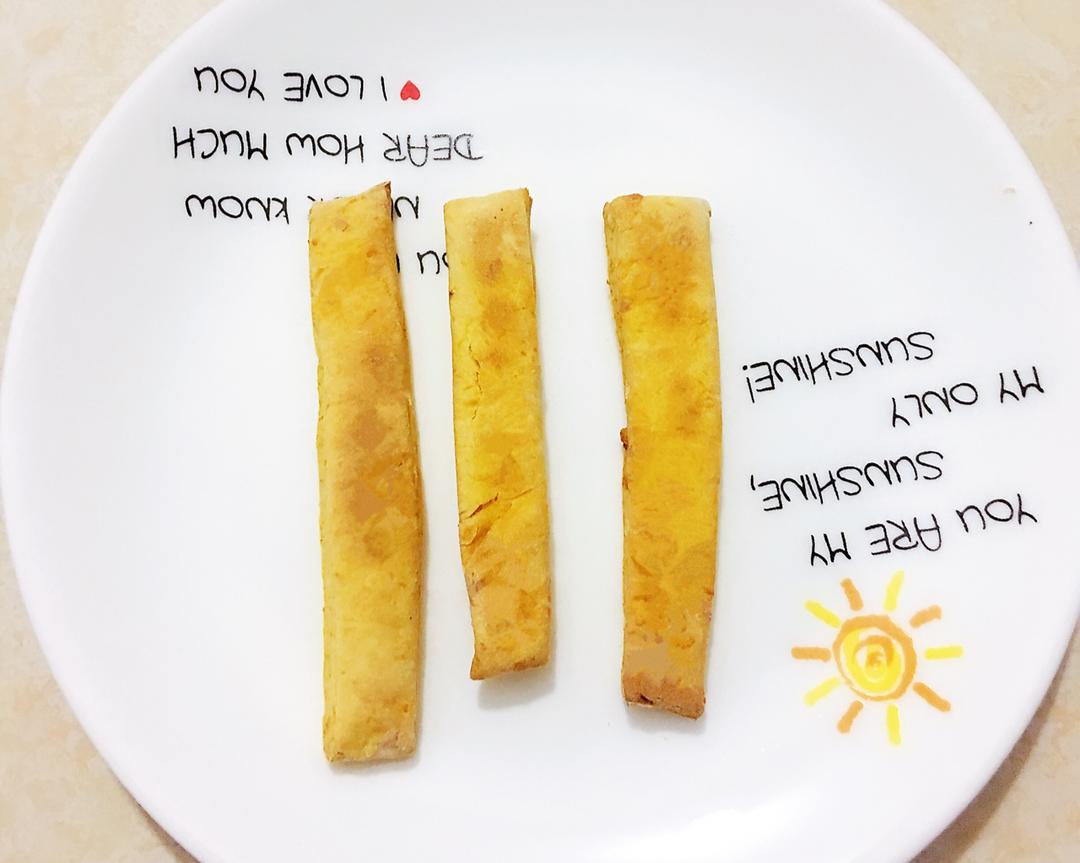 YOU ARE MY
SUNSHINE,
MY ONLY
SUNSHINE!
KNOW
DEAR HOW MUCH
♥ I LOVE YOU